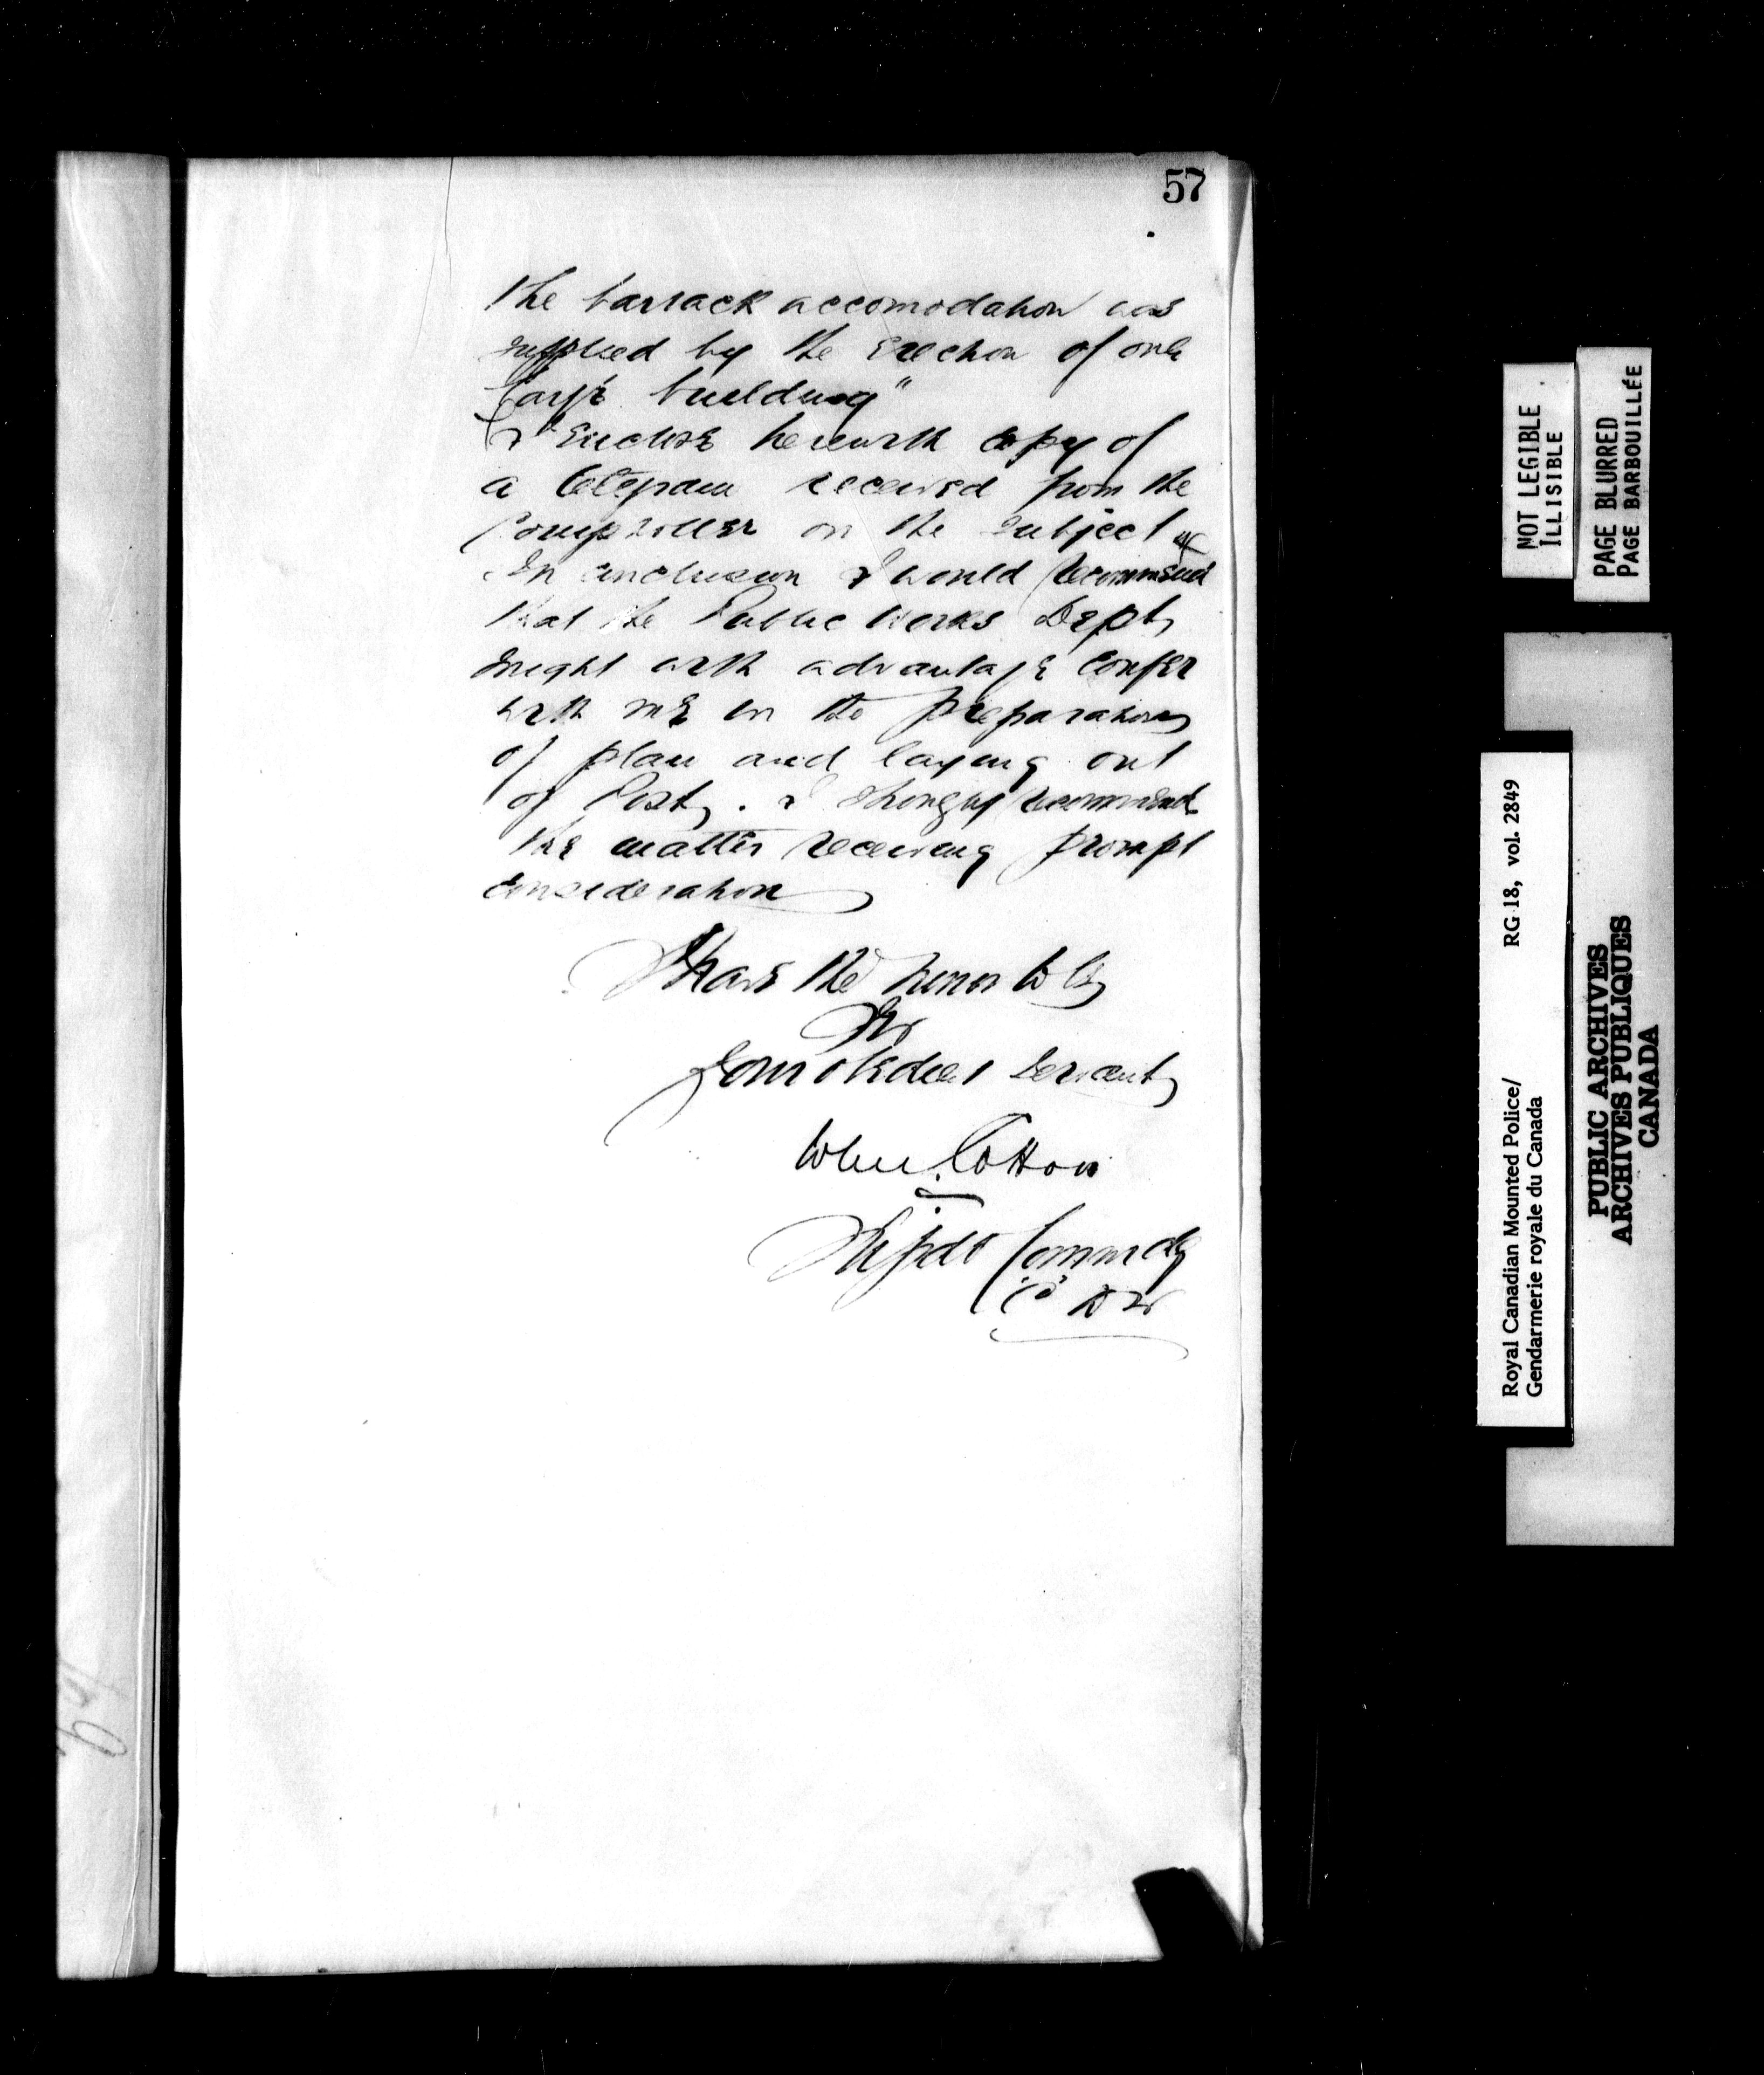 57
the barrack accomodation was
supplied by the Erection of one
large building"
I Enclose herewith copy of
a telegram received from the
Comptroller on the subject
In conclusion I would recommend
that the Public Works Dept
might with advantage confer
with me in the preparation
of plan and laying out
of Post. I strongly recommend
the matter receiving prompt
consideration
I have the honor to be
Sir
Your obedient servant
Cotton
Supdt Commdg
"C" Div
NOT LEGIBLE
ILLISIBLE
PAGE BLURRED
PAGE BARBOUILLÉE
Royal Canadian Mounted Police/ RG 18, vol. 2849
Gendarmerie royale du Canada
PUBLIC ARCHIVES
ARCHIVES PUBLIQUES
CANADA